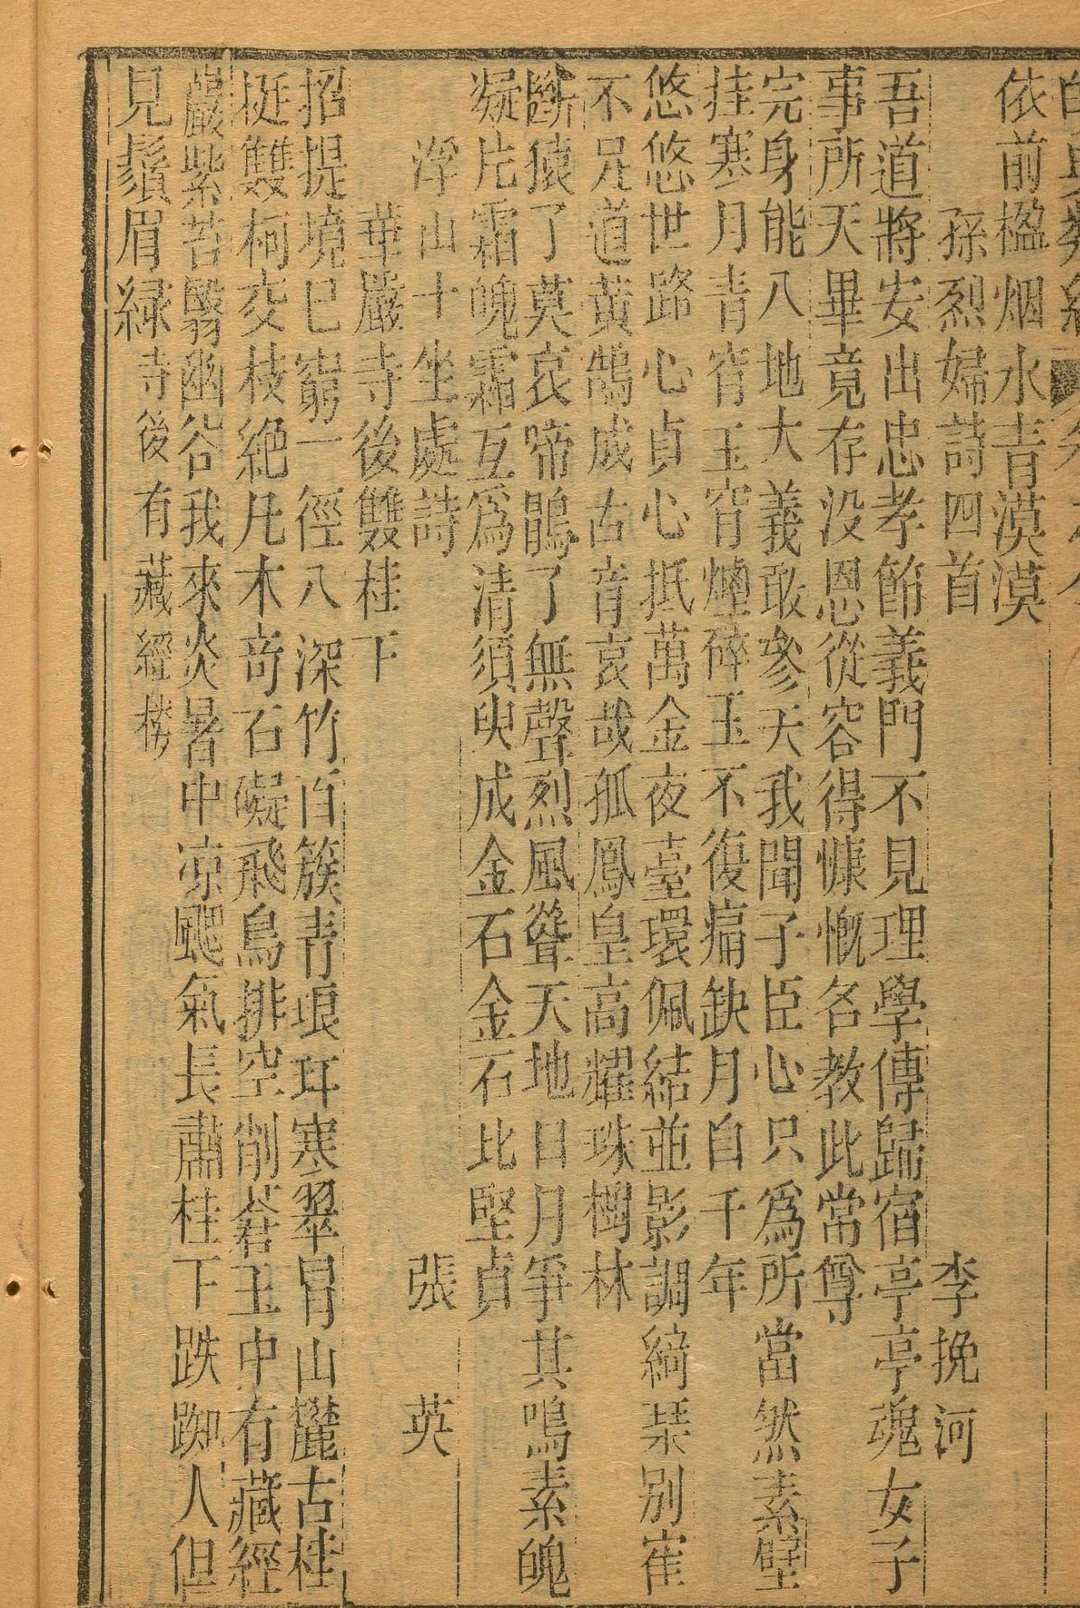 依前楹烟水青漠漠
孫烈婦詩四首 李挽河
吾道將安出忠孝節義門不見理學傳歸宿亭亭魂女子
事所天畢竟存没恩從容得慷慨名教此常尊
完身能八地大義敢參天我聞子臣心只爲所當然素壁
挂寒月青宵玉宵煙碎玉不復痛缺月自千年
悠悠世路心貞心抵萬金夜臺環佩結並影調綺琹别寉
不足道黄鵠成古音哀哉孤鳳皇高耀珠樹林
斷猿了莫哀啼鵑了無聲烈風聳天地日月爭其鳴素魄
凝片霜魄霜互爲清須臾成金石金石比堅貞
浮山十坐處詩 張英
華嚴寺後雙桂下
招提境已窮一徑八深竹百簇靑琅玕寒翠冐山麓古桂
挺雙柯交枝絶凡木竒石礙飛鳥排空削蒼玉中有藏經
巖紫苔翳幽谷我來炎暑中凉颸氣長肅桂下跌踟人但
見鬚眉緑寺後有藏經楼